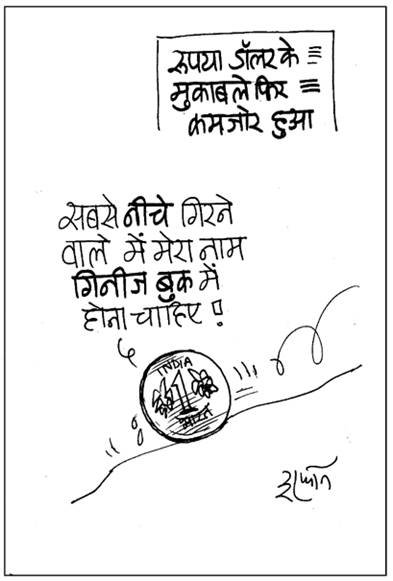 रुपया डॉलर के
मुकाबले फिर
कमजोर हुआ
सबसे नीचे गिरने
वाले में मेरा नाम
गिनीज बुक में
होना चाहिए !
INDIA
1
भारत
इरफान